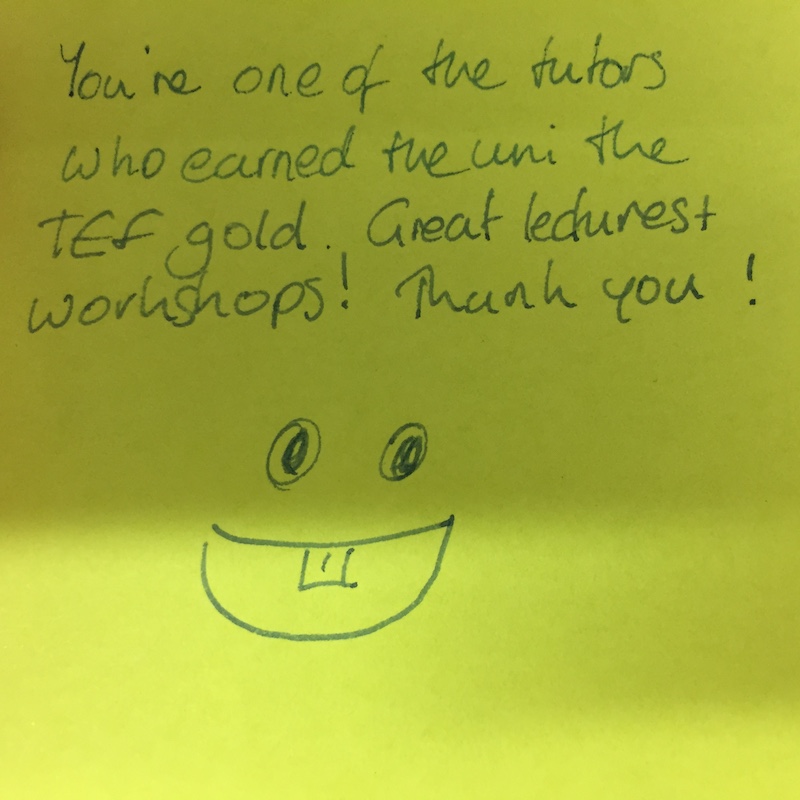 You're one of the tutors
who earned the uni the
TEF gold. Great lectures +
workshops! Thank you!